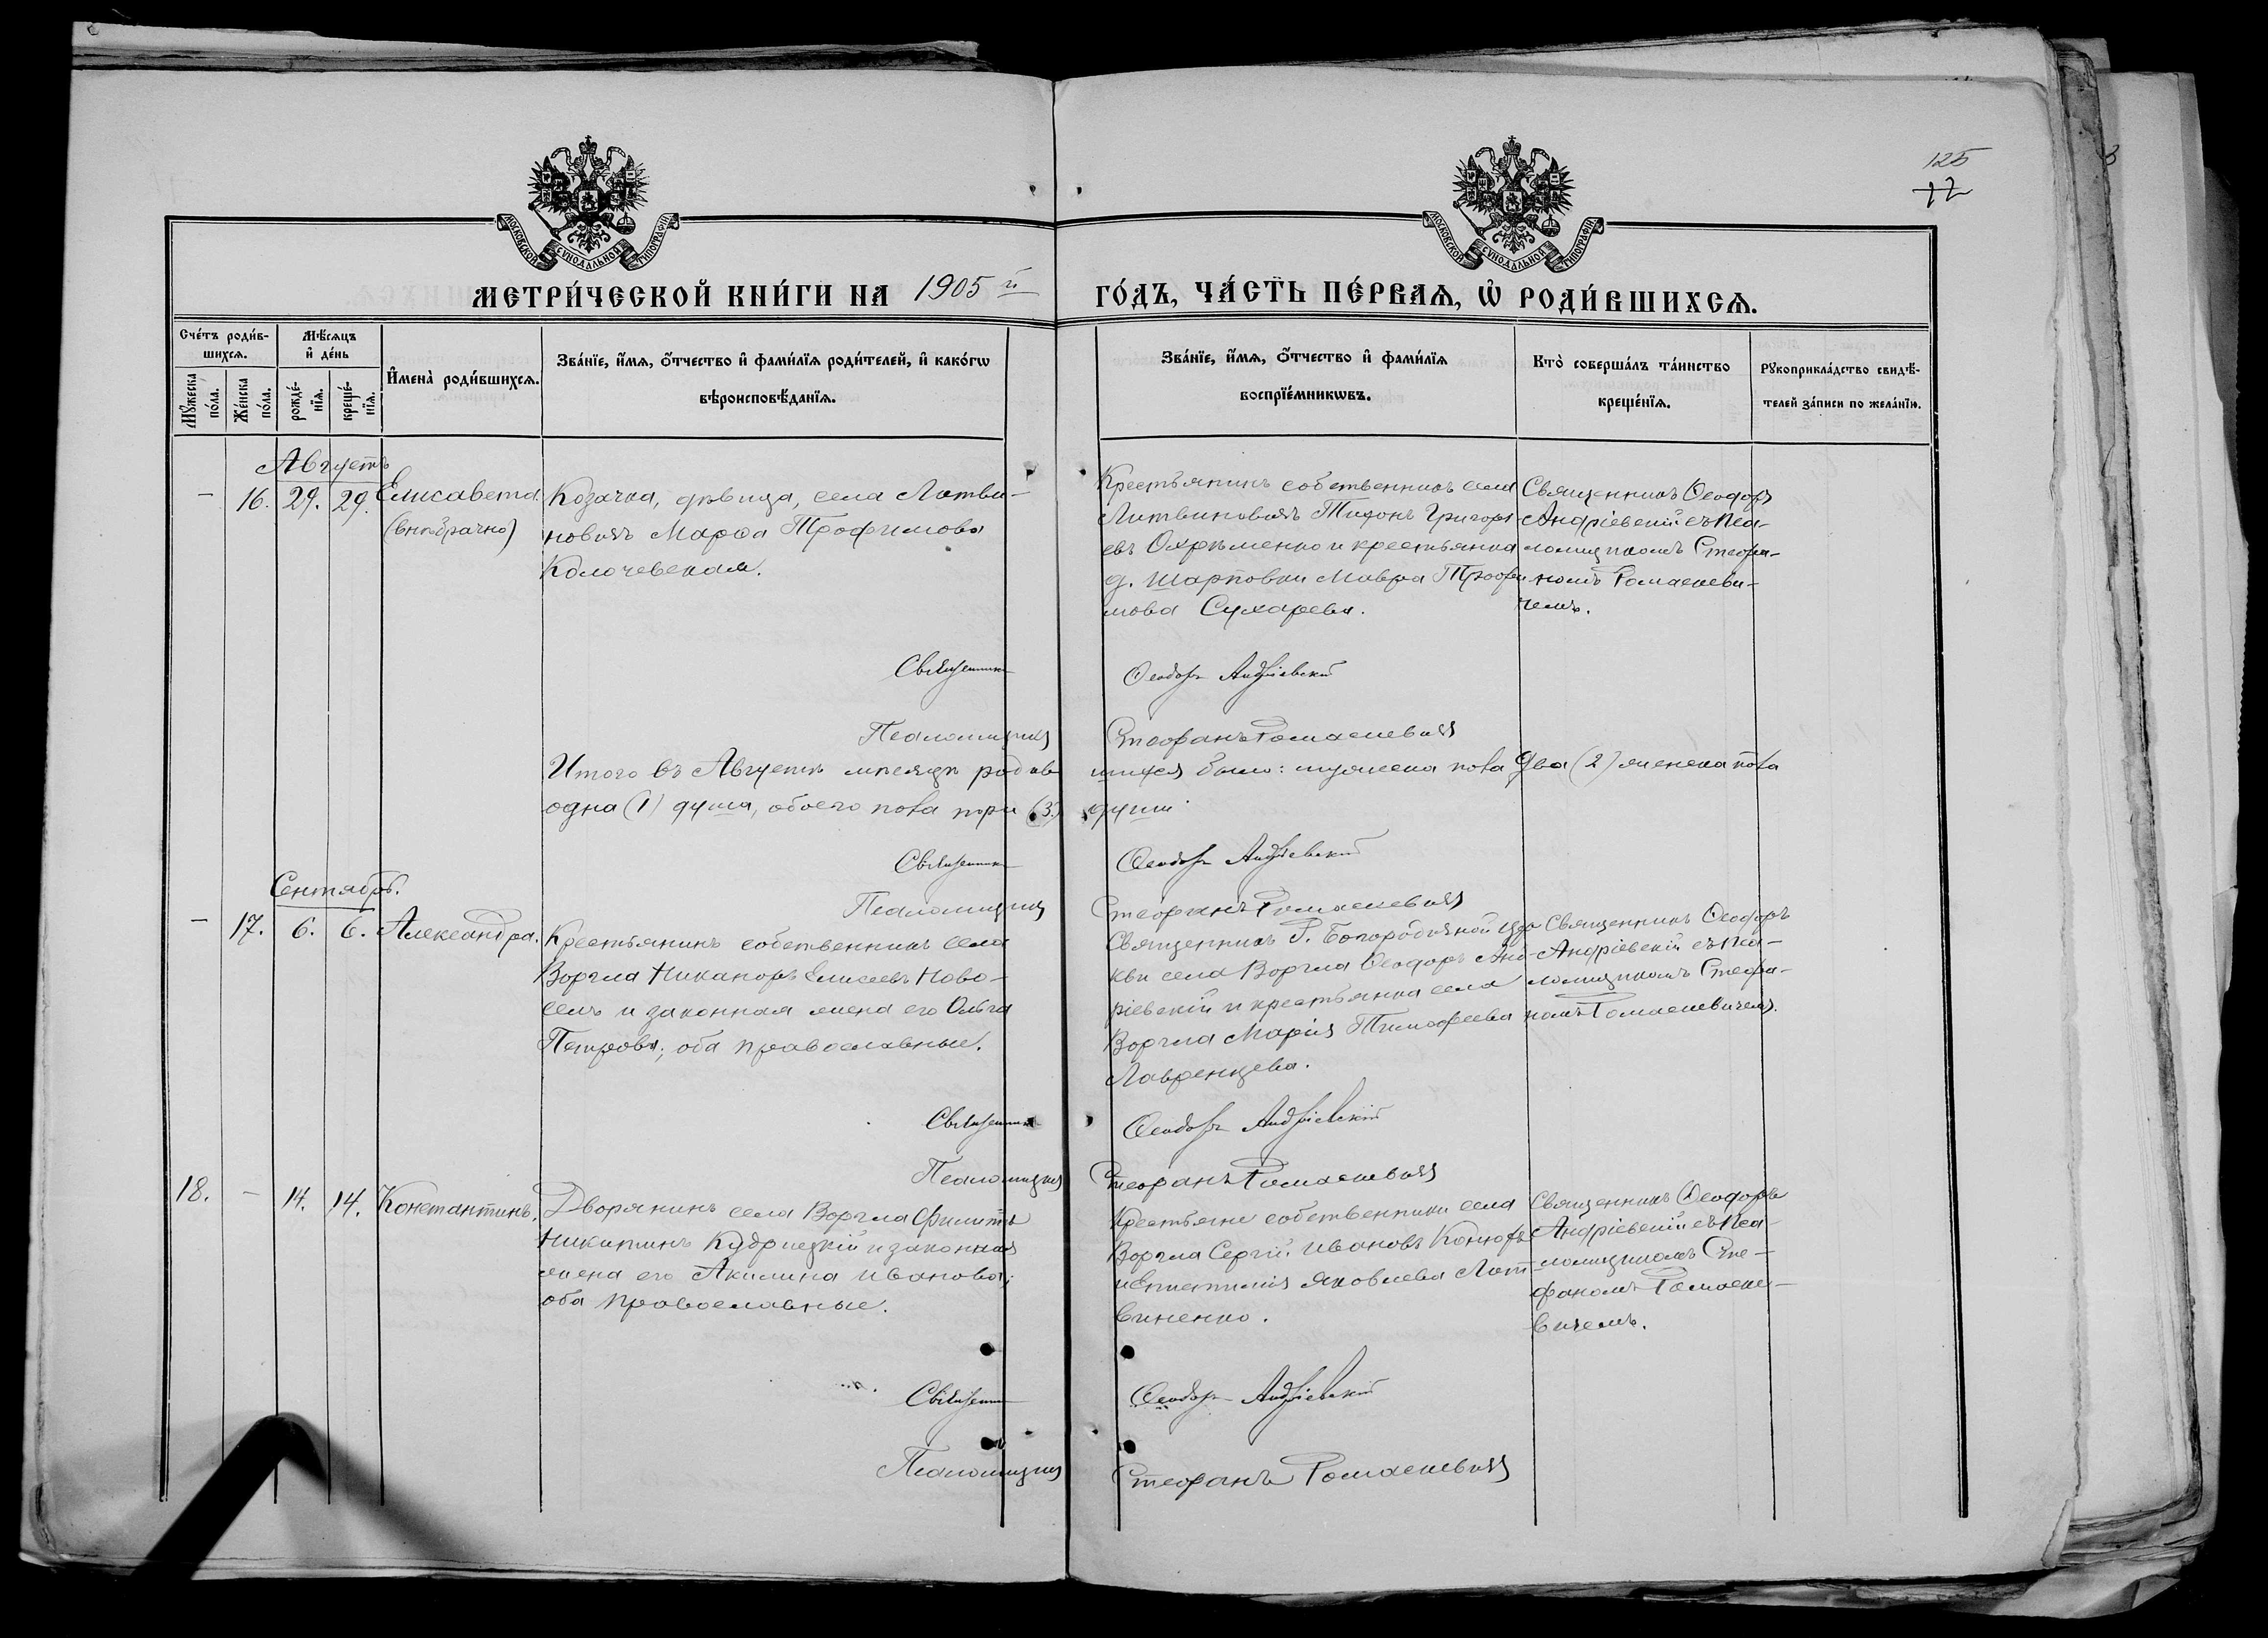 125
12
МОСКОВСКОЙ СѴНОДАЛЬНОЙ ТИПОГРАФІИ
МОСКОВСКОЙ СѴНОДАЛЬНОЙ ТИПОГРАФІИ
МЕТРИ́ЧЕСКОЙ КНИ́ГИ НА 1905 й
ГО́ДЪ, ЧА́СТЬ ПЕ́РВАѦ, Ѡ҆ РОДИ́ВШИХСѦ.
Сче́тъ роди́в-
шихсѧ.
Мꙋ́жеска
по́ла.
Же́нска
по́ла.
Мѣ́сѧцъ
и҆ де́нь
рожде́-
нїѧ.
креще́-
нїѧ.
И҆мена̀ роди́вшихсѧ.
Зва́нїе, и҆́мѧ, ѻ҆́тчество и҆ фами́лїѧ роди́телей, и҆ како́гѡ
вѣроисповѣ́данїѧ.
Зва́нїе, и҆́мѧ, ѻ҆́тчество и҆ фами́лїѧ
воспрїе́мникѡвъ.
Кто̀ соверша́лъ та́инство
креще́нїѧ.
Рꙋкоприкла́дство свидѣ́-
телей за́писи по жела́нїю.
Августъ
— 16. 29. 29. Елисавета
(внѣбрачно)
Козачка, дѣвица, села Литви-
новичъ Марфа Трофимова
Колочевская.
Крестьянинъ собственникъ села
Литвиновичъ Тихонъ Григорь-
евъ Охрѣменко и крестьянка
д. Шарповки Мавра Трофи
мова Сухарева.
Священникъ Ѳеодоръ
Андріевскій съ Пса-
ломщикомъ Стефа-
номъ Ромаскеви-
чемъ.
Священникъ Ѳеодоръ Андріевскій
Псаломщикъ Стефанъ Ромаскевичъ
Итого въ Августѣ мѣсяцѣ родив шихся было: мужеска пола два (2) женска пола
одна (1) душа, обоего пола три (3) души
Священникъ Ѳеодоръ Андріевскій
Псаломщикъ Стефанъ Ромаскевичъ
Сентябрь.
— 17. 6. 6. Александра.
Крестьянинъ собственникъ села
Воргла Никаноръ Елисеевъ Ново-
селъ и законная жена его Ольга
Петрова; оба православные.
Священникъ Р. Богородичной цер
кви села Воргла Ѳеодоръ Анд-
ріевскій и крестьянка села
Воргла Марія Тимофеева
Лавренцева.
Священникъ Ѳеодоръ
Андріевскій съ Пса-
ломщикомъ Стефа-
номъ Ромаскевичемъ.
Священникъ Ѳеодоръ Андріевскій
Псаломщикъ Стефанъ Ромаскевичъ
18. — 14. 14. Константинъ.
Дворянинъ села Воргла Филиппъ
Никитинъ Кудрицкій и законная
жена его Акилина Иванова;
оба православные.
Крестьяне собственники села
Воргла Сергій Ивановъ
Яковлева Лит-
виненко.
Священникъ Ѳеодоръ
Андріевскій съ Пса-
ломщикомъ Сте-
фаномъ Ромаске-
вичемъ.
Священникъ Ѳеодоръ Андріевскій
Псаломщикъ Стефанъ Ромаскевичъ